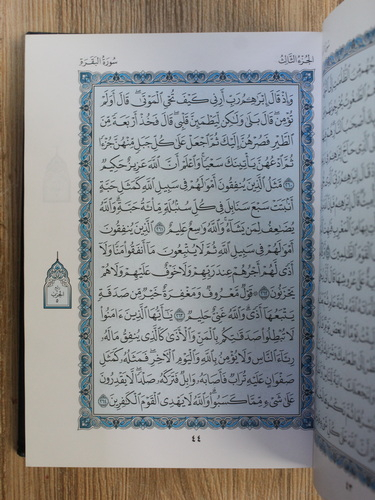 الجزء الثالث
سورة البقرة
وَإِذْ قَالَ إِبْرَٰهِـۧمُ رَبِّ أَرِنِى كَيْفَ تُحْىِ ٱلْمَوْتَىٰ قَالَ أَوَلَمْ
تُؤْمِن قَالَ بَلَىٰ وَلَٰكِن لِّيَطْمَئِنَّ قَلْبِى قَالَ فَخُذْ أَرْبَعَةً مِّنَ
ٱلطَّيْرِ فَصُرْهُنَّ إِلَيْكَ ثُمَّ ٱجْعَلْ عَلَىٰ كُلِّ جَبَلٍ مِّنْهُنَّ جُزْءًا
ثُمَّ ٱدْعُهُنَّ يَأْتِينَكَ سَعْيًا وَٱعْلَمْ أَنَّ ٱللَّهَ عَزِيزٌ حَكِيمٌ
٢٦٠ مَّثَلُ ٱلَّذِينَ يُنفِقُونَ أَمْوَٰلَهُمْ فِى سَبِيلِ ٱللَّهِ كَمَثَلِ حَبَّةٍ
أَنۢبَتَتْ سَبْعَ سَنَابِلَ فِى كُلِّ سُنۢبُلَةٍ مِّا۟ئَةُ حَبَّةٍ وَٱللَّهُ
يُضَٰعِفُ لِمَن يَشَآءُ وَٱللَّهُ وَٰسِعٌ عَلِيمٌ ٢٦١ ٱلَّذِينَ يُنفِقُونَ
أَمْوَٰلَهُمْ فِى سَبِيلِ ٱللَّهِ ثُمَّ لَا يُتْبِعُونَ مَآ أَنفَقُوا۟ مَنًّا وَلَآ
أَذًى لَّهُمْ أَجْرُهُمْ عِندَ رَبِّهِمْ وَلَا خَوْفٌ عَلَيْهِمْ وَلَا هُمْ
يَحْزَنُونَ ٢٦٢ قَوْلٌ مَّعْرُوفٌ وَمَغْفِرَةٌ خَيْرٌ مِّن صَدَقَةٍ
يَتْبَعُهَآ أَذًى وَٱللَّهُ غَنِىٌّ حَلِيمٌ ٢٦٣ يَٰٓأَيُّهَا ٱلَّذِينَ ءَامَنُوا۟
لَا تُبْطِلُوا۟ صَدَقَٰتِكُم بِٱلْمَنِّ وَٱلْأَذَىٰ كَٱلَّذِى يُنفِقُ مَالَهُۥ
رِئَآءَ ٱلنَّاسِ وَلَا يُؤْمِنُ بِٱللَّهِ وَٱلْيَوْمِ ٱلْءَاخِرِ فَمَثَلُهُۥ كَمَثَلِ
صَفْوَانٍ عَلَيْهِ تُرَابٌ فَأَصَابَهُۥ وَابِلٌ فَتَرَكَهُۥ صَلْدًا لَّا يَقْدِرُونَ
عَلَىٰ شَىْءٍ مِّمَّا كَسَبُوا۟ وَٱللَّهُ لَا يَهْدِى ٱلْقَوْمَ ٱلْكَٰفِرِينَ ٢٦٤
الحزب
٥
٤٤